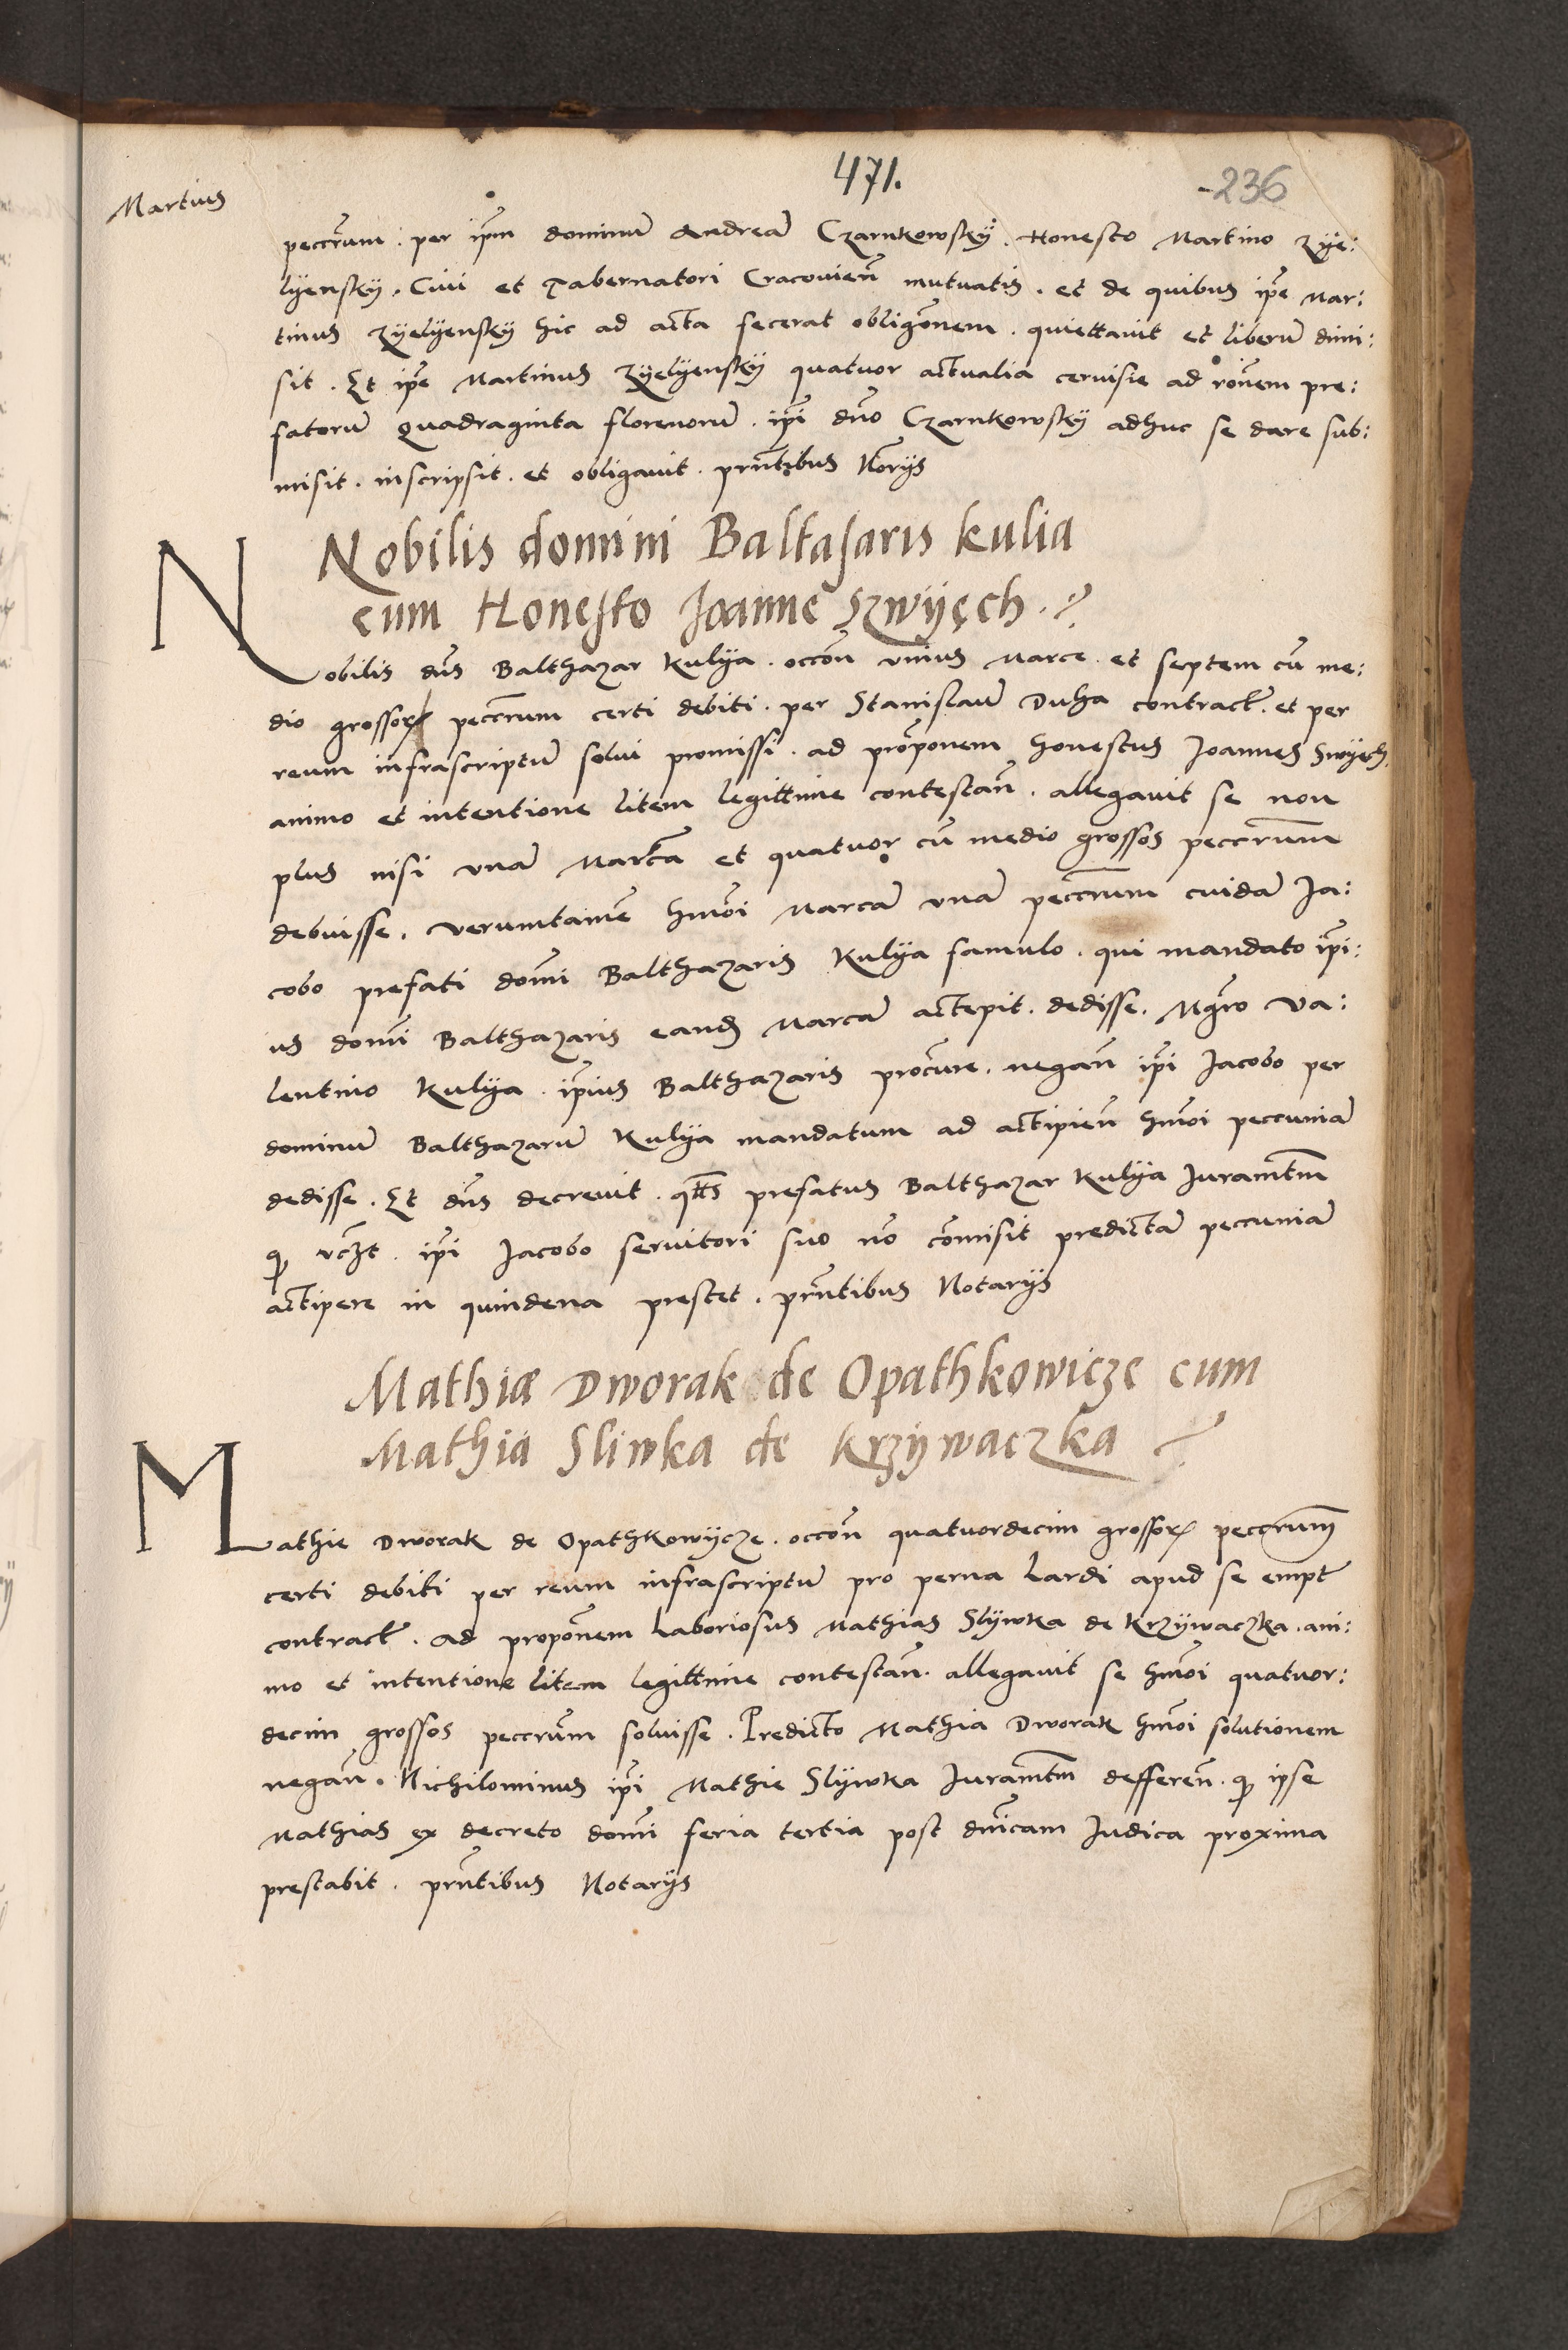 471.
236
Martius
peccrum. per ipm dominum Andream Czarnkowsky. Honesto Martino Zye:
lyensky. Civi et Tabernatori Cracouien mutuatis. et de quibus ipe Mar:
tinus Zyelyensky hic ad acta fecerat obligonem. quiettauit et liberum dimi:
sit. Et ipe Martinus Zyelyensky quatuor actualia ceruisie ad ronem pre:
fatorum Quadraginta florenorum. ipi dno Czarnkowsky adhuc se dare sub:
misit. inscripsit. et obligauit. prntibus Norijs
Nobilis domini Baltasaris Kulia
cum Honesto Joanne Szwyech.
Nobilis dns Balthazar Kulya. occon vnius Marce. et septem cum me:
dio grossorum peccrum certi debiti. per Stanislaum Duha contract. et per
reum infrascriptum solui promissi. ad proponem honestus Joannes Swyech.
animo et intentione litem legittime contestan. allegauit se non
plus nisi vnam Marcam et quatuor cum medio grossos peccrum
debuisse. verumtamen hmoi Marcam vnam peccrum cuidam Ja:
cobo prefati domi Balthazaris Kulya famulo. qui mandato ipi:
us domi Balthazaris eand Marcam accepit. dedisse. Mgro Va:
lentino Kulya. ipius Balthazaris procure. negan ipi Jacobo per
dominum Balthazarum Kulya mandatum ad accipien hmoi peccuniam
dedisse. Et dns decreuit. qtts prefatus Balthazar Kulya Juramtm
q vczt. ipi Jacobo seruitori suo no comisit predictam peccuniam
accipere in quindena prestet. prntibus Notarijs
Mathiæ Dworak de Opathkowicze cum
Mathia Sliwka de Krzywaczka
Mathie Dworak de Opathkowycze. occon quatuordecim grossorum peccrum
certi debiti per reum infrascriptum pro perna Lardi apud se empt
contract. ad proponem Laboriosus Mathias Slywka de Krzywaczka. ani:
mo et intentione litem legittime contestan. allegauit se hmoi quatuor:
decim grossos peccrum soluisse. Predicto Mathia Dworak hmoi solutionem
negan. Nichilominus ipi Mathie Slywka Juramtm defferen. q ipse
Mathias ex decreto domi feria tertia post dnicam Judica proxima
prestabit. prntibus Notarijs